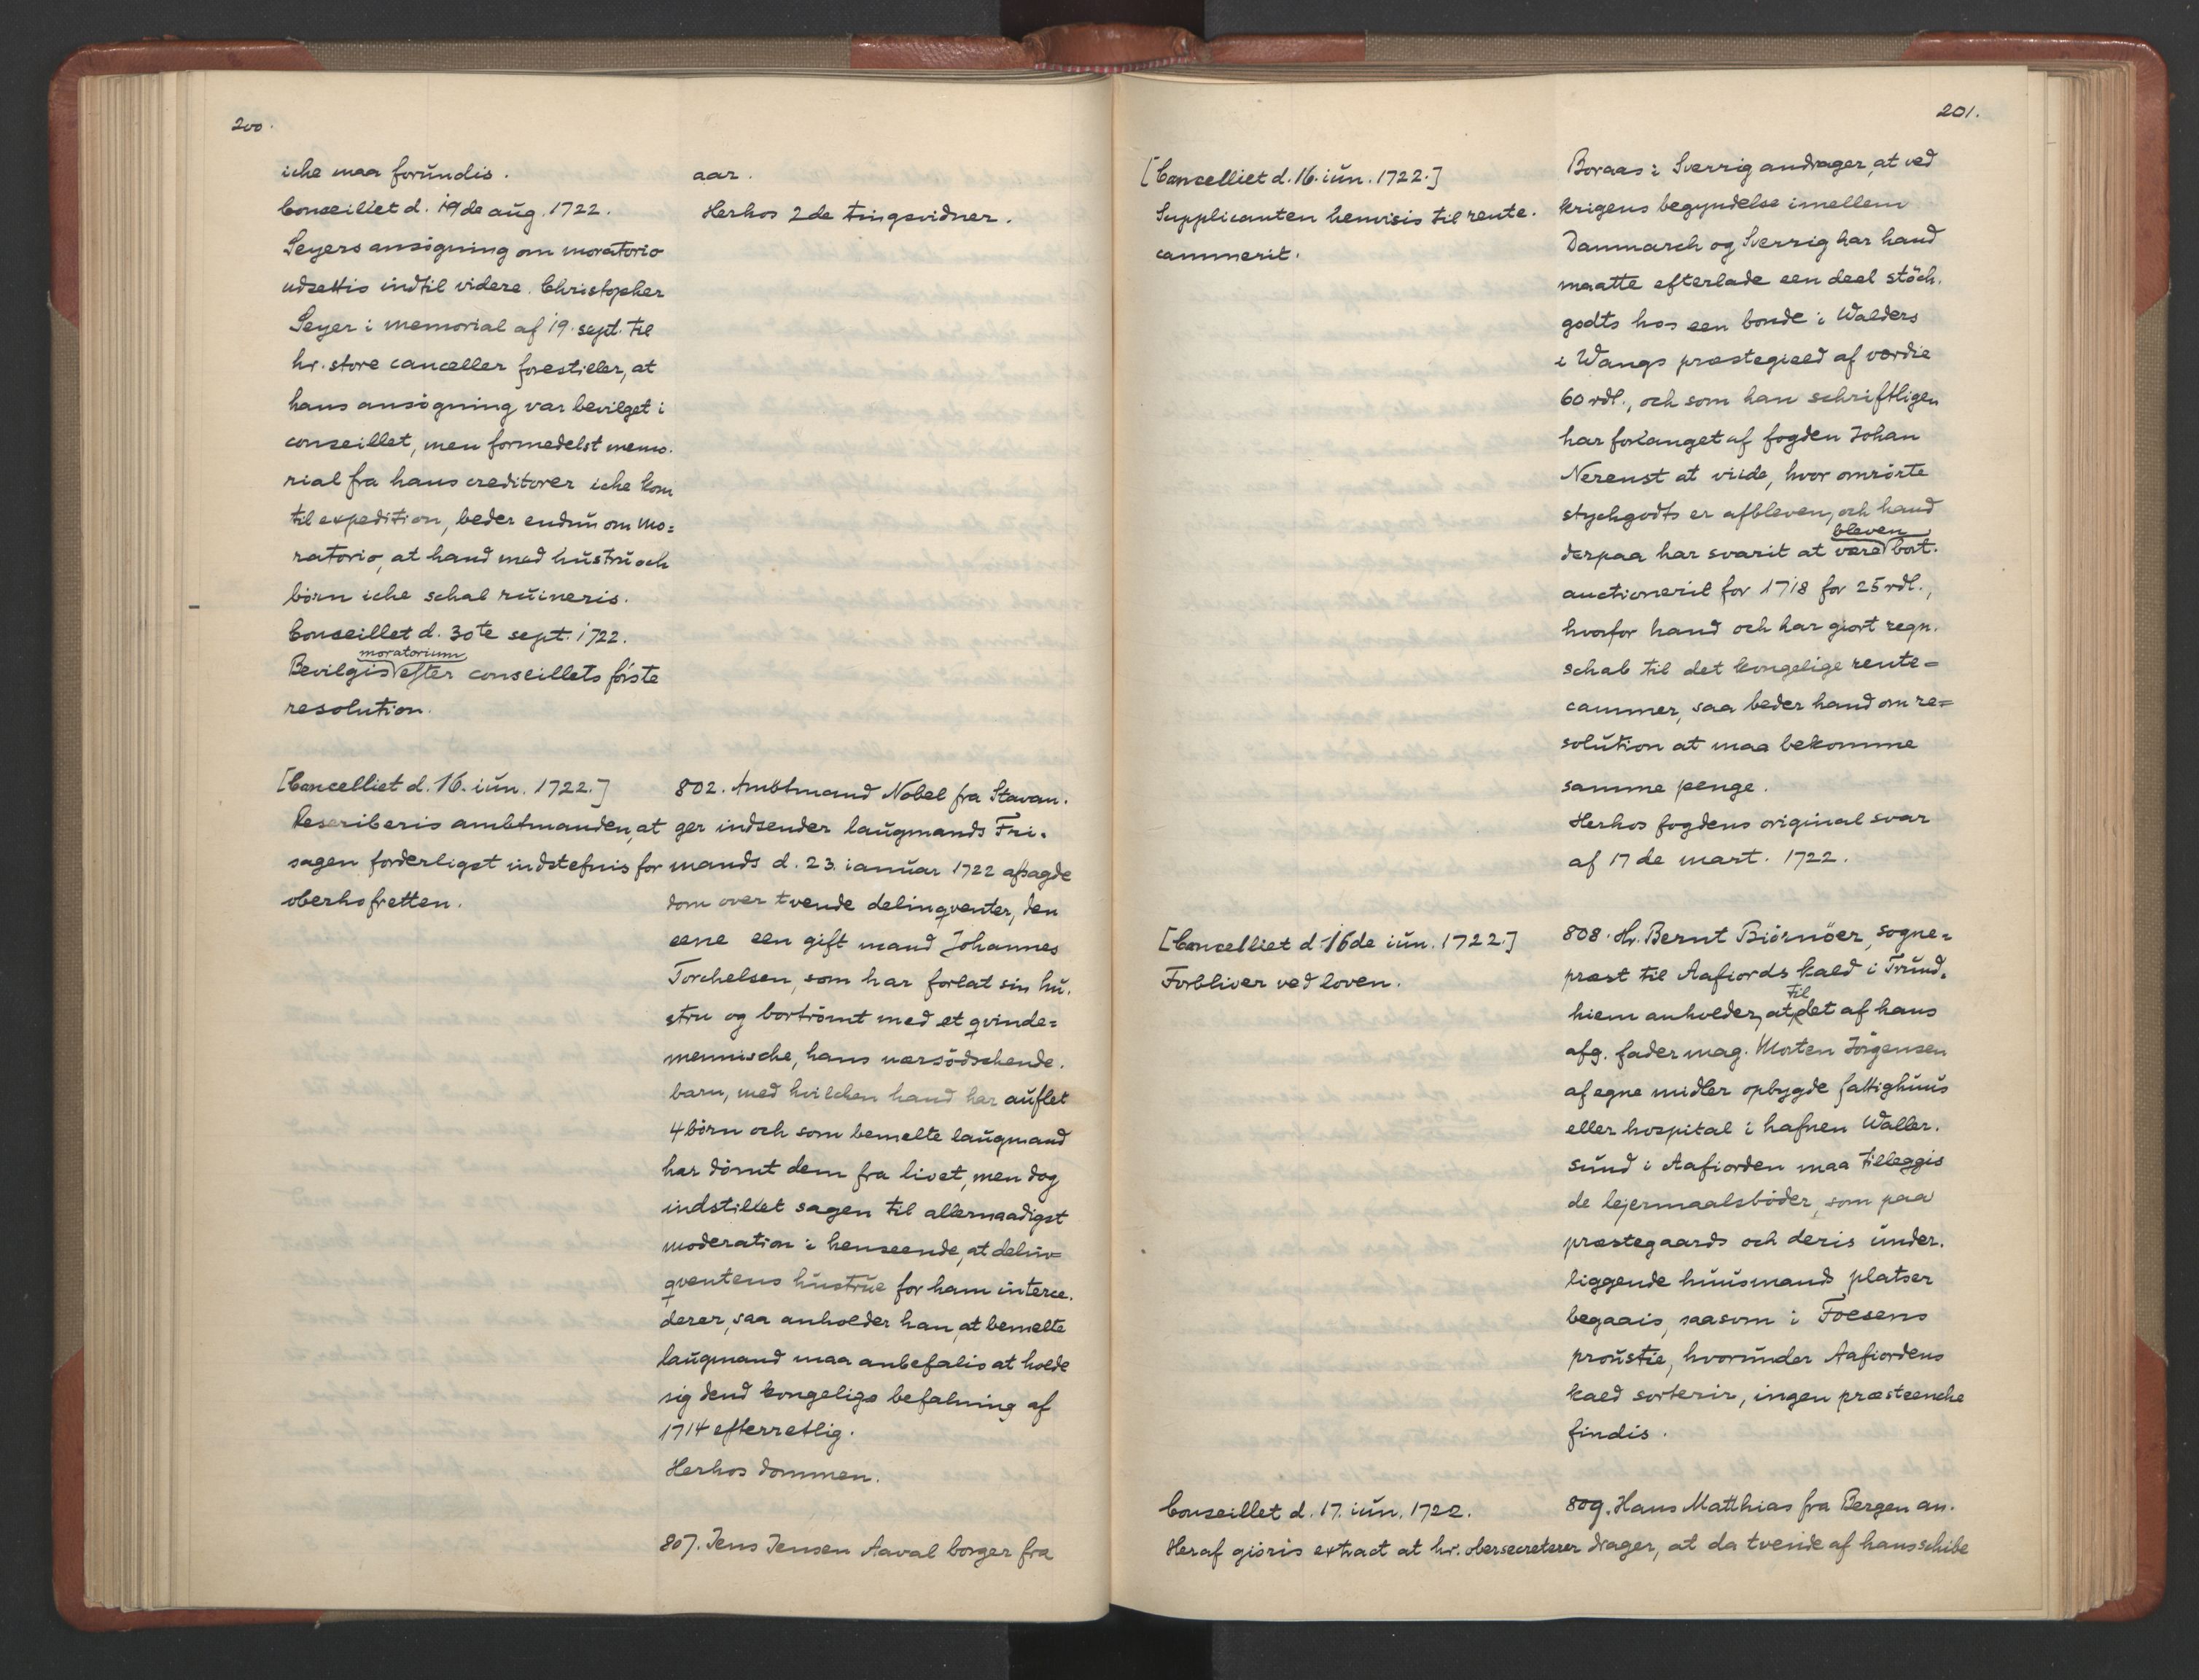 200.
iche maa forundis.
Conseillet d. 19de aug. 1722.
Seyers ansøgning om moratorio
udsettis indtil videre. Christopher
Seyer i memorial af 19. sept. til
hr. store canceller forestiller, at
hans ansøgning var bevilget i
conseillet, men formedelst memo-
rial fra hans creditorer iche kom
til expedition, beder endnu om mo=
ratorio, at hand med hustru och
børn iche schal ruineris.
Conseillet d. 30te sept. 1722.
moratorium
Bevilgis efter conseillets første
resolution.
[Cancelliet d. 16. iun. 1722.]
Rescriberis ambtmanden, at
sagen forderligst indstefnis for
oberhofretten.
aar.
Herhos 2de tingsvidner.
802. Ambtmand Nobel fra Stavan-
ger indsender laugmands Fri-
mands d. 23. ianuar 1722 afsagde
dom over tvende delinqventer, den
eene een gift mand Johannes
Torchelsen, som har forlat sin hu-
stru og bortrømt med et qvinde=
mennische, hans nærsødschende-
barn, med hvilchen hand har auflet
4 børn och som bemelte laugmand
har dømt dem fra livet, men dog
indstillet sagen til allernaadigst
moderation i henseende, at delin=
qventens hustrue for ham interce-
derer, saa anholder han, at bemelte
laugmand maa anbefalis at holde
sig dend kongelige befalning af
1714 efterretlig.
Herhos dommen.
807. Jens Jensen Aaval borger fra
201.
[Cancelliet d. 16. iun. 1722.]
Supplicanten henvisis til rente-
cammerit.
Boraas i Sverrig andrager, at ved
krigens begyndelse imellem
Danmarch og Sverrig har hand
maatte efterlade een deel støch-
godts hos een bonde i Walders
i Wangs præstegield af værdie
60 rdl., och som han schriftligen
har forlanget af fogden Johan
Nerenst at viide, hvor omrørte
stychgodts er afbleven, och hand
bleven
derpaa har svarit at være bort-
auctionerit for 1718 for 25 rdl.,
hvorfor hand och har giort regn-
schab til det kongelige rente=
cammer, saa beder hand om re=
solution at maa bekomme
samme penge.
Herhos fogdens original svar
af 17de mart. 1722.
[Cancelliet d. 16de iun. 1722.]
Forbliver ved loven.
808. Hr. Bernt Biørnøer, sogne=
præst til Aafiords kald i Trund-
til
hiem anholder, at det af hans
afg. fader mag. Morten Jørgensen
af egne midler opbygde fattighuus
eller hospital i hafnen Waller-
sund i Aafiorden maa tilleggis
de lejermaalsbøder, som paa
præstegaards och deris under-
liggende huusmands platser
begaais, saasom i Foesens
proustie, hvorunder Aafiordens
kald sorterir, ingen præsteenche
findis.
Conseillet d. 17. iun. 1722.
Heraf giøris extract at hr. obersecreterer
809. Hans Matthias fra Bergen an-
drager, at da tvende af hans schibe